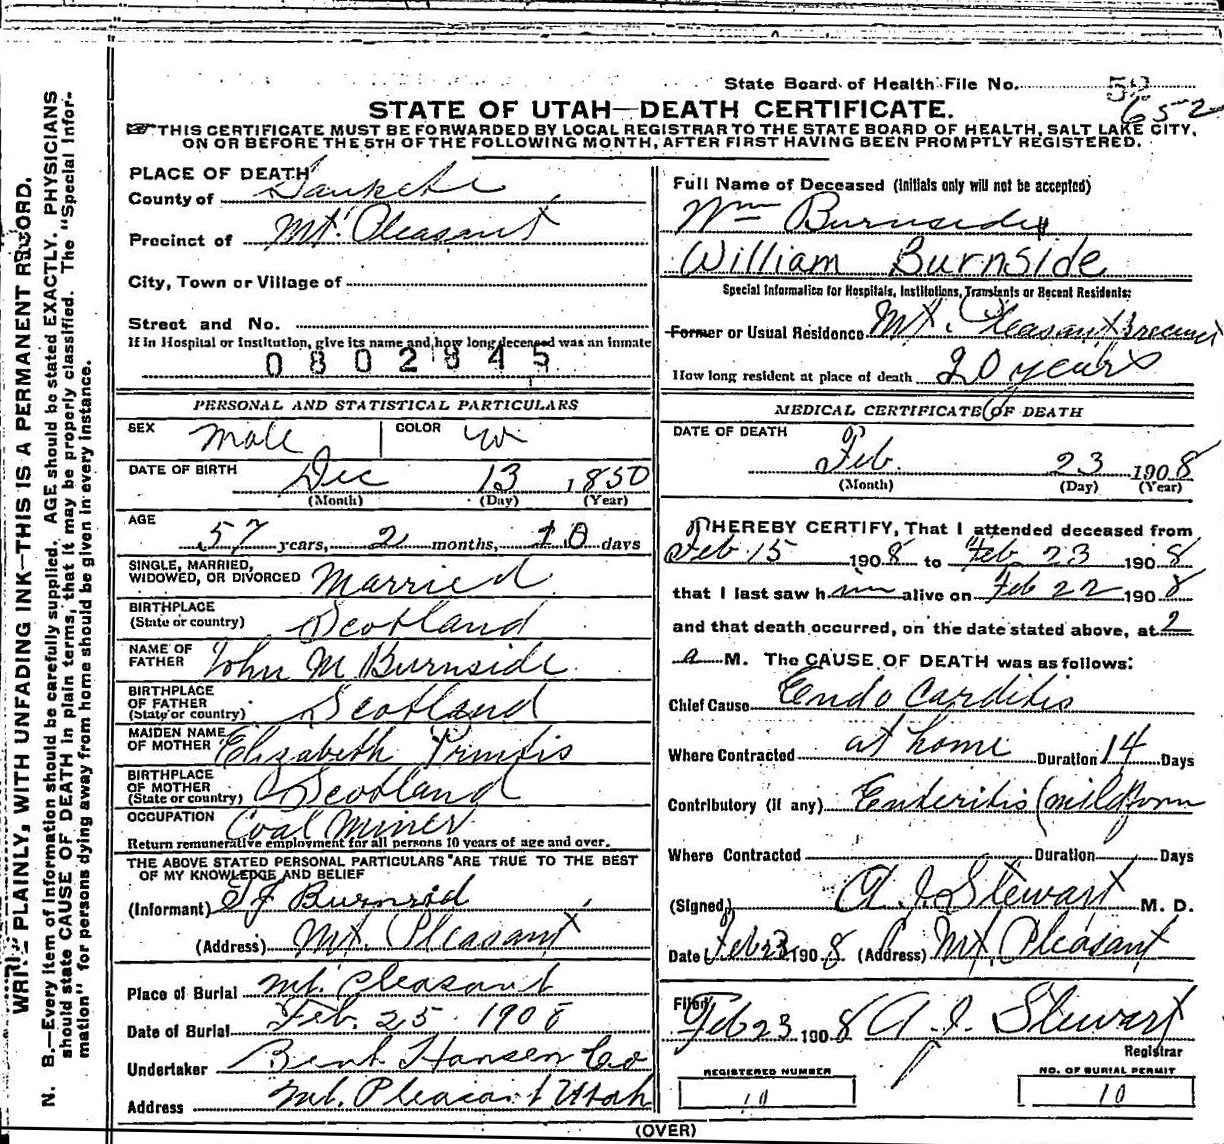 State Board of Health File No. 58
652
STATE OF UTAH—DEATH CERTIFICATE.
THIS CERTIFICATE MUST BE FORWARDED BY LOCAL REGISTRAR TO THE STATE BOARD OF HEALTH, SALT LAKE CITY,
ON OR BEFORE THE 5TH OF THE FOLLOWING MONTH, AFTER FIRST HAVING BEEN PROMPTLY REGISTERED.
WRITE PLAINLY, WITH UNFADING INK—THIS IS A PERMANENT RECORD.
N. B.—Every item of information should be carefully supplied. AGE should be stated EXACTLY. PHYSICIANS
should state CAUSE OF DEATH in plain terms, that it may be properly classified. The "Special Infor-
mation" for persons dying away from home should be given in every instance.
PLACE OF DEATH
County of Sanpete
Precinct of Mt. Pleasant
City, Town or Village of
Street and No.
If in Hospital or Institution, give its name and how long deceased was an inmate
0802845
PERSONAL AND STATISTICAL PARTICULARS
SEX Male COLOR W
DATE OF BIRTH Dec 13 1850
(Month) (Day) (Year)
AGE
57 years, 2 months, 10 days
SINGLE, MARRIED,
WIDOWED, OR DIVORCED Married
BIRTHPLACE
(State or country) Scotland
NAME OF
FATHER John M Burnside
BIRTHPLACE
OF FATHER
(State or country) Scotland
MAIDEN NAME
OF MOTHER Elizabeth
BIRTHPLACE
OF MOTHER
(State or country) Scotland
OCCUPATION Coal Miner
Return remunerative employment for all persons 10 years of age and over.
THE ABOVE STATED PERSONAL PARTICULARS ARE TRUE TO THE BEST
OF MY KNOWLEDGE AND BELIEF
(Informant) Burnsid
(Address) Mt. Pleasant
Place of Burial Mt. Pleasant
Date of Burial Feb. 25 1908
Undertaker Hansen Co
Address Mt. Pleasant Utah
Full Name of Deceased (Initials only will not be accepted)
Wm Burnside
William Burnside
Special Information for Hospitals, Institutions, Transients or Recent Residents:
Former or Usual Residence Mt. Pleasant Precinct
How long resident at place of death 20 years
MEDICAL CERTIFICATE OF DEATH
DATE OF DEATH
Feb. 23 1908
(Month) (Day) (Year)
I HEREBY CERTIFY, That I attended deceased from
Feb 15 1908 to Feb 23 1908
that I last saw him alive on Feb 22 1908
and that death occurred, on the date stated above, at 2
a M. The CAUSE OF DEATH was as follows:
Chief Cause Endo Carditis
Where Contracted at home Duration 14 Days
Contributory (if any) Enderitis (mild form
Where Contracted Duration Days
(Signed) A. J. Stewart M. D.
Date Feb 23 1908 (Address) Mt. Pleasant
Filed Feb 23 1908 A. J. Stewart
Registrar
REGISTERED NUMBER
10
NO. OF BURIAL PERMIT
10
(OVER)